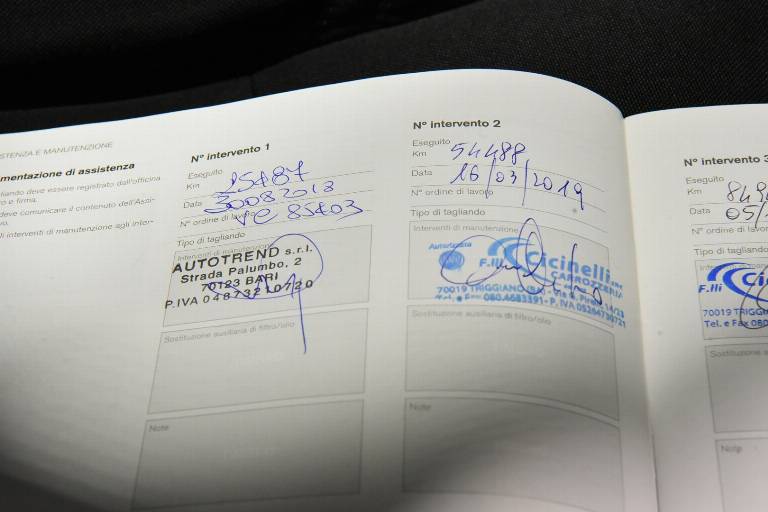 STENZA E MANUTENZIONE
mentazione di assistenza
gliando deve essere registrato dall'officina
o e firma.
deve comunicare il contenuto dell'Assi-
gli interventi di manutenzione agli inter-
N° intervento 1
Eseguito
Km
25487
Data
30082018
N° ordine di lavoro
VC 85403
Tipo di tagliando
Interventi di manutenzione
AUTOTREND s.r.l.
Strada Palumbo, 2
70123 BARI
P.IVA 04873210720
Sostituzione ausiliaria di filtro/olio
Note
N° intervento 2
Eseguito
Km
54488
Data
16/03/2019
N° ordine di lavoro
Tipo di tagliando
Interventi di manutenzione
F.lli Cicinelli
CARROZZERIA
70019 TRIGGIANO (BA)
Tel. e Fax 080.4683391 - P.IVA
Sostituzione ausiliaria di filtro/olio
Note
N° intervento 3
Eseguito
Km
Data
05/
N° ordine di lavo
Tipo di tagliando
F.lli Ci
70019 TRIGGI
Tel. e Fax 080
Sostituzione a
Note